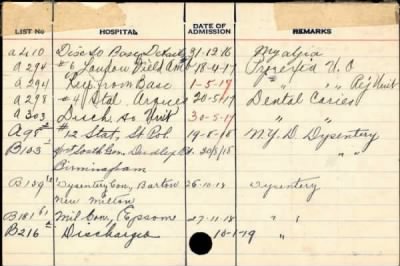 LIST No HOSPITAL DATE OF ADMISSION REMARKS
A410 Disc to Base Details 31-12-16 Myalgia
A274 #6 London Field Amb 18-4-17 Pyrexia U.O
A294 Rej from Base 1-5-17 " " Rej Unit
A298 #4 Stat. Arques 20-5-17 Dental Caries
A303 Disch to Unit 30-5-17 " "
A98 #12 Stat, St Pol. 19-8-18 N.Y.D. Dysentery
B103 1st South Gen, Dudley Rd. 30/8/18 " "
Birmingham
B159 Dysentery Con, Barton 26-10-18 Dysentery
New Milton
B181 Mil Con, Epsom 27-11-18 "
B216 Discharged 10-1-19 "